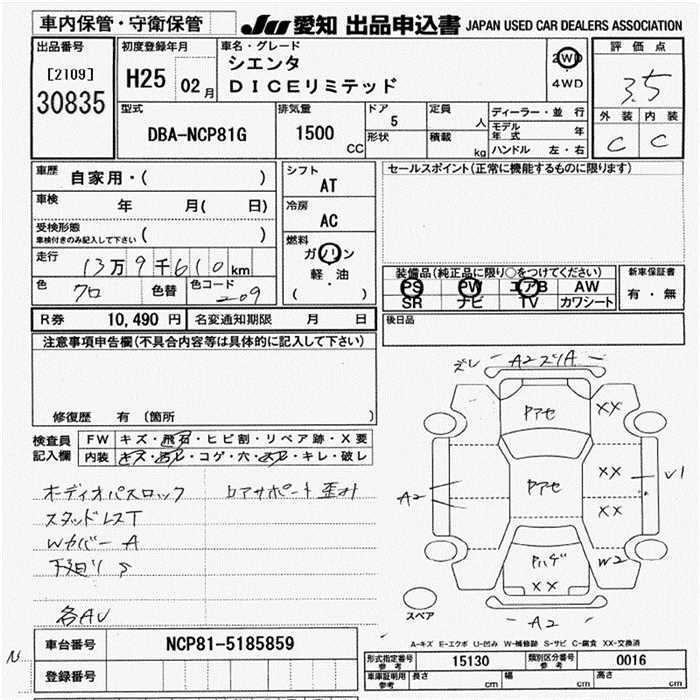 車内保管・守衛保管
JU 愛知 出品申込書 JAPAN USED CAR DEALERS ASSOCIATION
出品番号
[2109]
30835
初度登録年月
H25 02月
車名・グレード
シエンタ
DICEリミテッド
2WD
4WD
評価点
3.5
外装 内装
C C
型式
DBA-NCP81G
排気量
1500 CC
ドア
5
形状
定員
人
積載
kg
ディーラー・並行
モデル年式 年
ハンドル 左・右
車歴
自家用・( )
車検
年 月( 日)
受検形態
車検付きのみ記入して下さい ( )
走行 13万9千610km
色 クロ 色替 色コード 209
シフト
AT
冷房
AC
燃料
ガソリン
軽・油
( )
セールスポイント(正常に機能するものに限ります)
装備品(純正品に限り○をつけてください)
PS PW エアB AW
SR ナビ TV カワシート
新車保証書
有・無
R券 10,490円 名変通知期限 月 日
後日品
注意事項申告欄(不具合内容等は具体的に記入して下さい)
修復歴 有 〔箇所 〕
検査員記入欄
FW キズ・飛石・ヒビ割・リペア跡・X要
内装 キズ・汚レ・コゲ・穴・スレ・キレ・破レ
オーディオパスロック
リアサポート歪み
スタッドレスT
Wカバー A
下廻り S
各AU
ズレ A2ズリA
Pアセ
XX
Pアセ
XX
XX
A2
V1
Pハゲ
XX
W2
A2
スペア
A-キズ E-エクボ U-凹み W-補修跡 S-サビ C-腐食 XX-交換済
車台番号 NCP81-5185859
登録番号
形式指定番号 参考 15130
類別区分番号 参考 0016
車庫証明用 参考 長さ cm 幅 cm 高さ cm